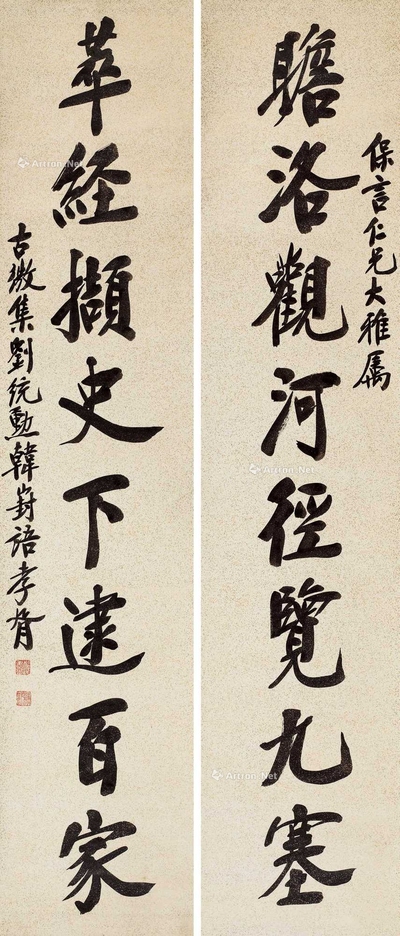 保言仁兄大雅属
瞻洛觀河徑覽九塞
萃経擷史下逮百家
古微集劉統勳韓葑語孝胥
Artron.Net
Artron.Net
Artron.Net
Artron.Net